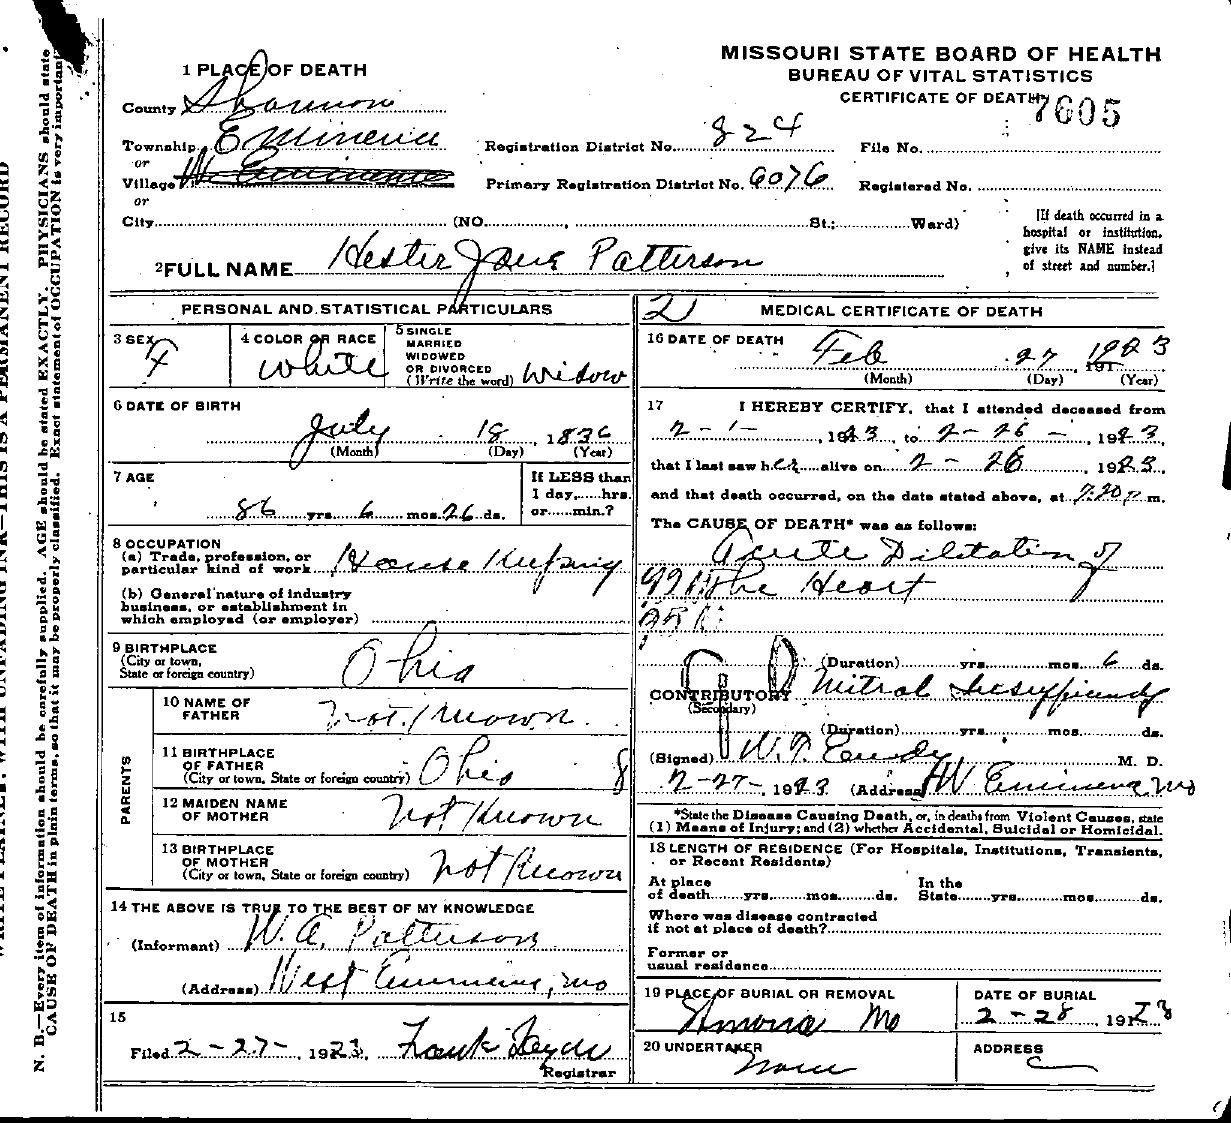 MISSOURI STATE BOARD OF HEALTH
BUREAU OF VITAL STATISTICS
CERTIFICATE OF DEATH
7605
1 PLACE OF DEATH
County Shannon
Township Eminence
or
Village W. Eminence
or
City (NO. , St.; Ward)
Registration District No. 824
File No.
Primary Registration District No. 6076
Registered No.
[If death occurred in a
hospital or institution,
give its NAME instead
of street and number.]
2 FULL NAME Hester Jane Patterson
PERSONAL AND STATISTICAL PARTICULARS
3 SEX F
4 COLOR OR RACE White
5 SINGLE
MARRIED
WIDOWED
OR DIVORCED
(Write the word) Widow
6 DATE OF BIRTH
July 18, 1836
(Month) (Day) (Year)
7 AGE
86 yrs. 6 mos. 26 ds.
If LESS than
1 day,......hrs.
or......min.?
8 OCCUPATION
(a) Trade, profession, or
particular kind of work House Keeping
(b) General nature of industry
business, or establishment in
which employed (or employer)
9 BIRTHPLACE
(City or town,
State or foreign country) Ohio
PARENTS
10 NAME OF
FATHER Not Known
11 BIRTHPLACE
OF FATHER
(City or town, State or foreign country) Ohio
12 MAIDEN NAME
OF MOTHER Not Known
13 BIRTHPLACE
OF MOTHER
(City or town, State or foreign country) Not Known
14 THE ABOVE IS TRUE TO THE BEST OF MY KNOWLEDGE
(Informant) W.A. Patterson
(Address) West Eminence, Mo
15
Filed 2-27-, 1923, Frank
Registrar
2
MEDICAL CERTIFICATE OF DEATH
16 DATE OF DEATH
Feb 27 1923
(Month) (Day) (Year)
17 I HEREBY CERTIFY, that I attended deceased from
2-1-, 1923, to 2-26-, 1923,
that I last saw her alive on 2-26, 1923,
and that death occurred, on the date stated above, at 7:20 P m.
The CAUSE OF DEATH* was as follows:
Acute Dilitation of
the Heart
(Duration) yrs. mos. 6 ds.
CONTRIBUTORY Mitral Insufficiency
(Secondary)
(Duration) yrs. mos. ds.
(Signed) W.T. Eudy M. D.
2-27-, 1923 (Address) W Eminence Mo
*State the Disease Causing Death, or, in deaths from Violent Causes, state
(1) Means of Injury; and (2) whether Accidental, Suicidal or Homicidal.
18 LENGTH OF RESIDENCE (For Hospitals, Institutions, Transients,
or Recent Residents)
At place In the
of death......yrs......mos......ds. State......yrs......mos......ds.
Where was disease contracted
if not at place of death?
Former or
usual residence
19 PLACE OF BURIAL OR REMOVAL
Mo
DATE OF BURIAL
2-28, 1923
20 UNDERTAKER
None
ADDRESS
N. B.—Every item of information should be carefully supplied. AGE should be stated EXACTLY. PHYSICIANS should state
CAUSE OF DEATH in plain terms, so that it may be properly classified. Exact statement of OCCUPATION is very important.